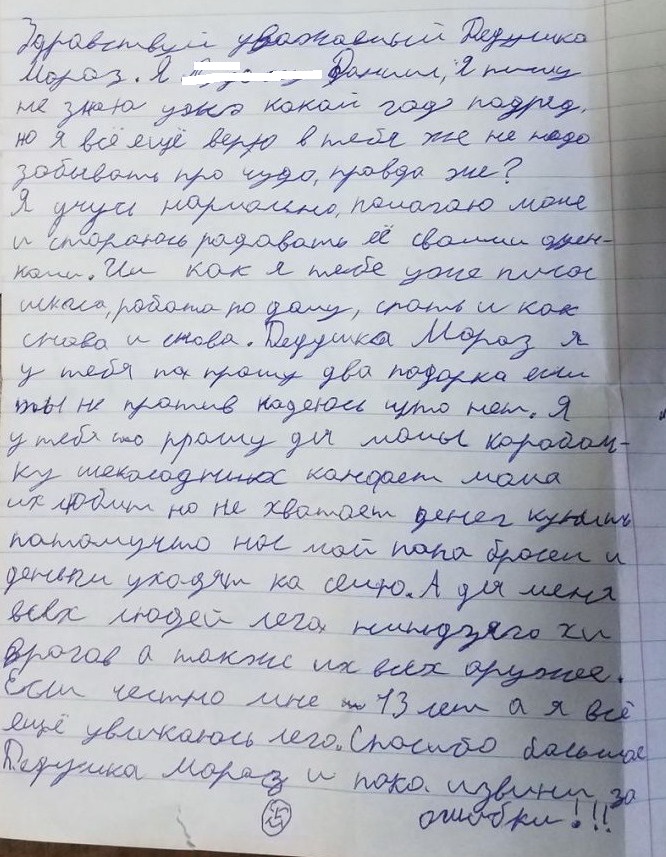 Здравствуй уважаемый Дедушка
Мороз. Я Даниил, Я пишу
не знаю уже какой год подряд,
но я всё ещё верю в тебя же не надо
забывать про чудо, правда же?
Я учусь нормально, помогаю маме
и стараюсь радовать её своими оцен-
ками. Ии как я тебе уже писал
школа, работа по дому, спать и как
снова и снова. Дедушка Мороз я
у тебя по прошу два подарка если
ты не против надеюсь что нет. Я
у тебя по прошу для мамы коробом-
ку шеколадных канфет мама
их любит но не хватает денег купить
патамучто нас мой папа бросил и
деньги уходят на семю. А для меня
всех людей лего ниндзяго их
врагов а также их всех оружее.
Если честно мне 13 лет а я всё
ещё увликаюсь лего. Спасибо большое
Дедушка Мороз и пока. извини за
ошибки!!!